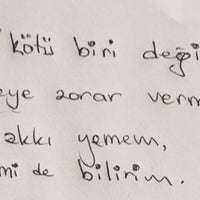 kötü biri deği
eye zarar verm
akkı yemem,
mi de bilirim.